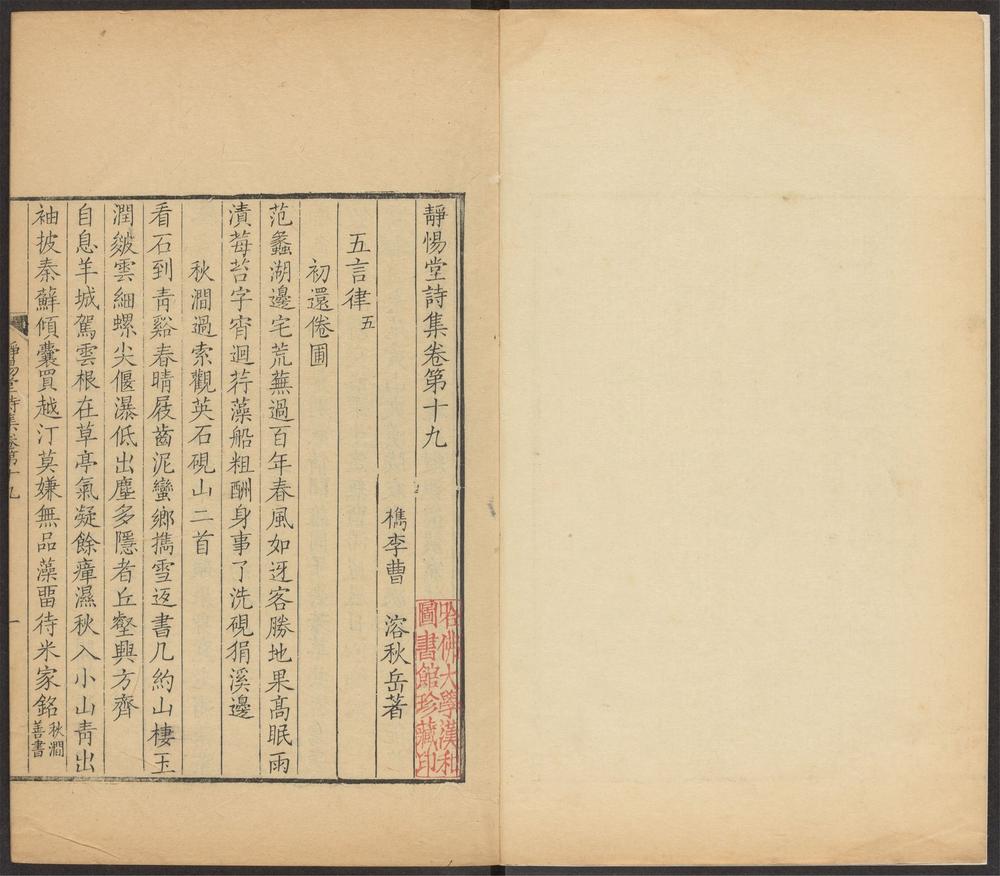 靜惕堂詩集卷第十九
檇李曹 溶秋岳著
五言律五
初還倦圃
范蠡湖邊宅荒蕪過百年春風如迓客勝地果高眠雨
漬莓苔字宵迴荇藻船粗酬身事了洗硯狷溪邊
秋澗過索觀英石硯山二首
看石到青谿春晴屐齒泥蠻鄉攜雪返書几約山棲玉
潤皴雲細螺尖偃瀑低出塵多隱者丘壑興方齊
自息羊城駕雲根在草亭氣凝餘瘴濕秋入小山青出
袖披秦蘚傾囊買越汀莫嫌無品藻畱待米家銘秋澗善書
靜惕堂詩集卷第十九
一
哈佛大學漢和圖書館珍藏印